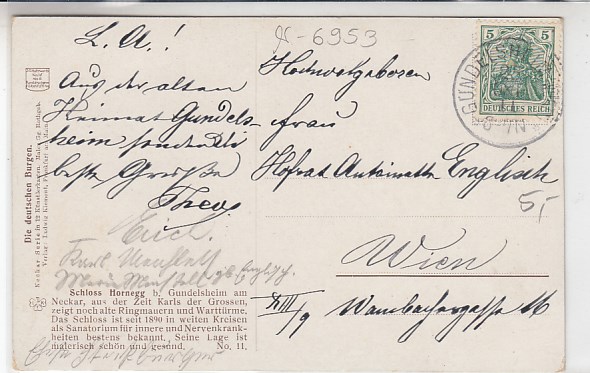 L. A.!
Aus der alten
Heimat Gundels-
heim sendet die
beste Grüße
Theo
Erich.
Karl
Schloss Hornegg b. Gundelsheim am
Neckar, aus der Zeit Karls der Grossen,
zeigt noch alte Ringmauern und Warttürme.
Das Schloss ist seit 1890 in weiten Kreisen
als Sanatorium für innere und Nervenkrank-
heiten bestens bekannt. Seine Lage ist
malerisch schön und gesund. No. 11.
Die deutschen Burgen.
9C-6953
Hochwolgeboren
Frau
Hofrat Antoinette Englisch
5,-
Wien
XIII/9 Wambachergasse 16
5 5
DEUTSCHES REICH
GUNDELSHEIM